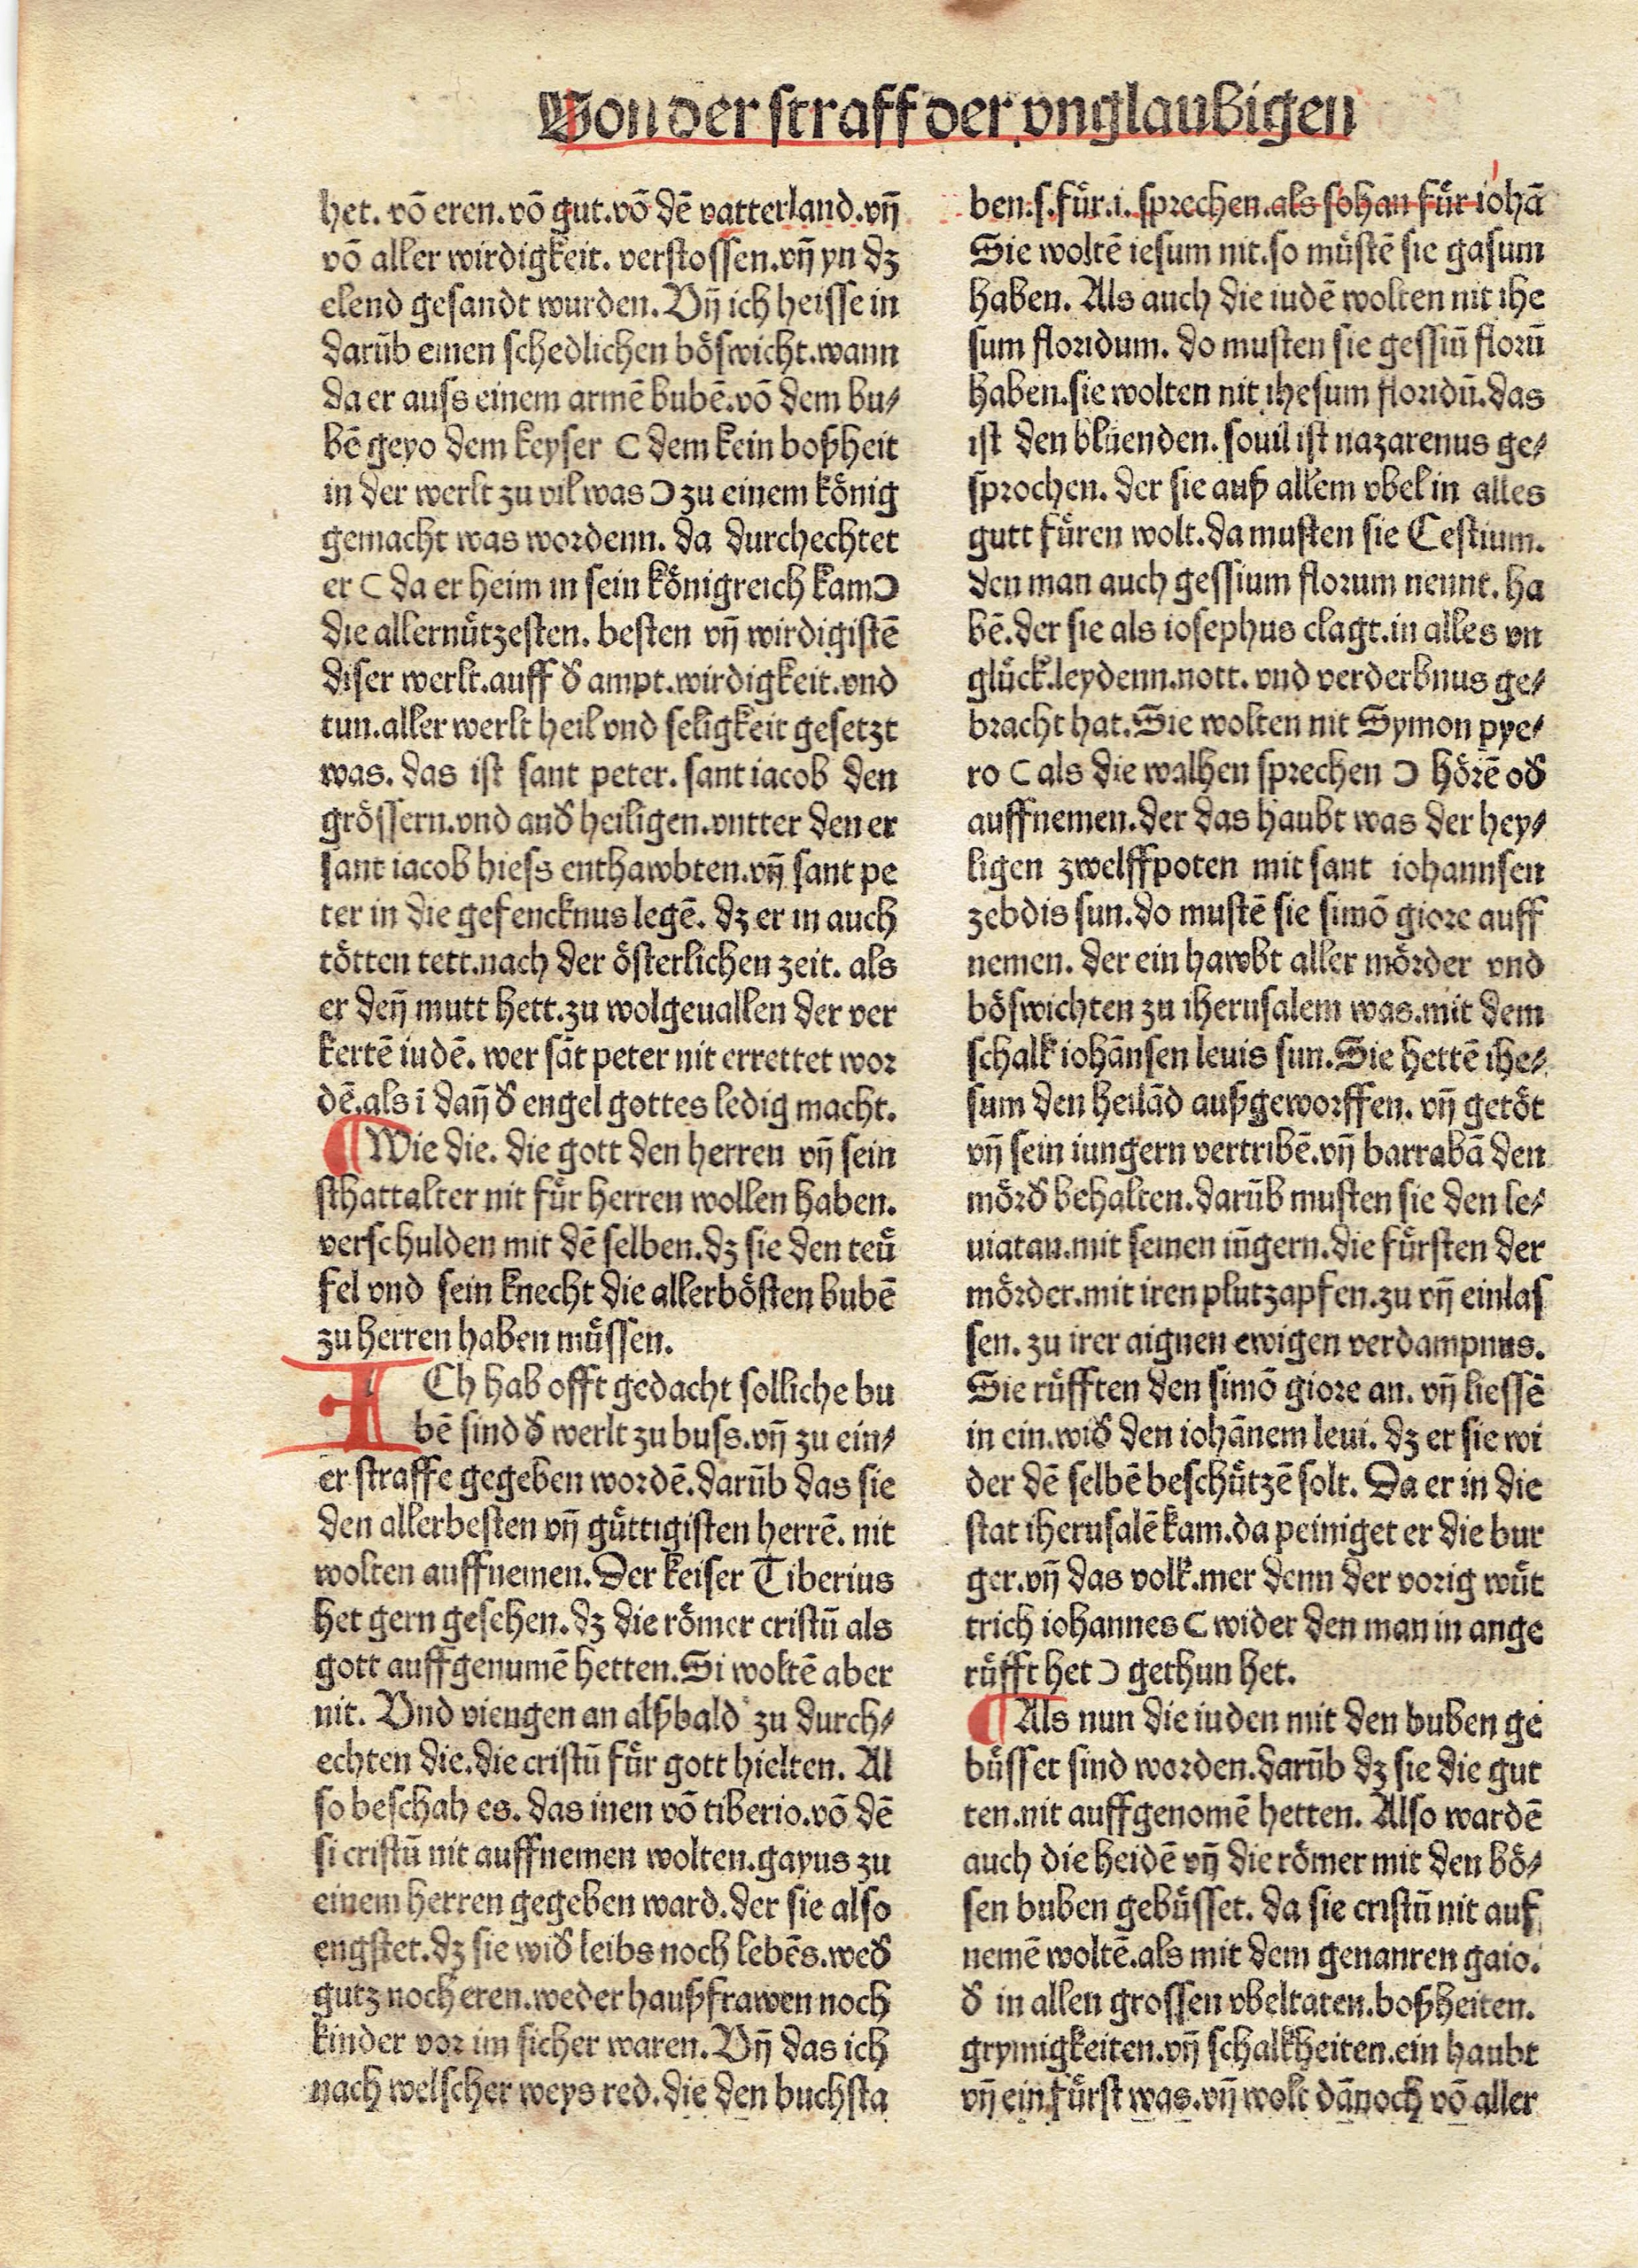 Von der straff der vnglaubigen
het. vō eren. vō gut. vō dē vatterland. vñ
vō aller wirdigkeit. verstossen. vñ yn dz
elend gesandt wurden. Vñ ich heisse in
darūb einen schedlichen böswicht. wann
da er auss einem armē bubē. vō dem bu⸗
bē geyo dem keyser (dem kein boßheit
in der werlt zu vil was) zu einem könig
gemacht was wordenn. da durchechtet
er (da er heim in sein königreich kam)
die allernützesten. besten vñ wirdigistē
diser werlt. auff ð ampt. wirdigkeit. vnd
tun. aller werlt heil vnd seligkeit gesetzt
was. das ist sant peter. sant iacob den
grössern. vnd anð heiligen. vntter den er
sant iacob hiess enthawbten. vñ sant pe
ter in die gefencknus legē. dz er in auch
tötten tett. nach der österlichen zeit. als
er deñ mutt hett. zu wolgeuallen der ver
kertē iudē. wer sāt peter nit errettet wor
dē. als ī dañ ð engel gottes ledig macht.
¶ Wie die. die gott den herren vñ sein
sthattalter nit für herren wollen haben.
verschulden mit dē selben. dz sie den teü
fel vnd sein knecht die allerbösten bubē
zu herren haben müssen.
ICh hab offt gedacht solliche bu
bē sind ð werlt zu buss. vñ zu ein⸗
er straffe gegeben wordē. darūb das sie
den allerbesten vñ güttigisten herrē. nit
wolten auffnemen. Der keiser Tiberius
het gern gesehen. dz die römer cristū als
gott auffgenumē hetten. Si woltē aber
nit. Vnd viengen an alßbald zu durch⸗
echten die. die cristū für gott hielten. Al
so beschah es. das inen vō tiberio. vō dē
si cristū nit auffnemen wolten. gayus zu
einem herren gegeben ward. der sie also
engstet. dz sie wið leibs noch lebēs. weð
gutz noch eren. weder haußfrawen noch
kinder vor im sicher waren. Vñ das ich
nach welscher weys red. die den buchsta
ben. s. für. i. sprechen. als sohan für iohā
Sie woltē iesum nit. so müstē sie gasum
haben. Als auch die iudē wolten nit ihe
sum floridum. do musten sie gessiū florū
haben. sie wolten nit ihesum floridū. das
ist den blüenden. souil ist nazarenus ge⸗
sprochen. der sie auß allem vbel in alles
gutt füren wolt. da musten sie Cestium.
den man auch gessium florum nennt. ha
bē. der sie als iosephus clagt. in alles vn
glück. leydenn. nott. vnd verderbnus ge⸗
bracht hat. Sie wolten nit Symon pye⸗
ro (als die walhen sprechen) hörē oð
auffnemen. der das haubt was der hey⸗
ligen zwelffpoten mit sant iohannsen
zebdis sun. do mustē sie simō giore auff
nemen. der ein hawbt aller mörder vnd
böswichten zu iherusalem was. mit dem
schalk iohānsen leuis sun. Sie hettē ihe⸗
sum den heilād außgeworffen. vñ getöt
vñ sein iungern vertribē. vñ barrabā den
mörð behalten. darūb musten sie den le⸗
uiatan. mit seinen iūgern. die fürsten der
mörder. mit iren plutzapfen. zu vñ einlas
sen. zu irer aignen ewigen verdampnus.
Sie rüfften den simō giore an. vñ liessē
in ein. wið den iohānem leui. dz er sie wi
der dē selbē beschützē solt. Da er in die
stat iherusalē kam. da peiniget er die bur
ger. vñ das volk. mer denn der vorig wüt
trich iohannes (wider den man in ange
rüfft het) gethun het.
¶ Als nun die iuden mit den buben ge
büsset sind worden. darūb dz sie die gut
ten. nit auffgenomē hetten. Also wardē
auch die heidē vñ die römer mit den bö⸗
sen buben gebüsset. da sie cristū nit auf
nemē woltē. als mit dem genanten gaio.
ð in allen grossen vbeltaten. boßheiten.
grymigkeiten. vñ schalkheiten. ein haubt
vñ ein fürst was. vñ wolt dānoch vō aller